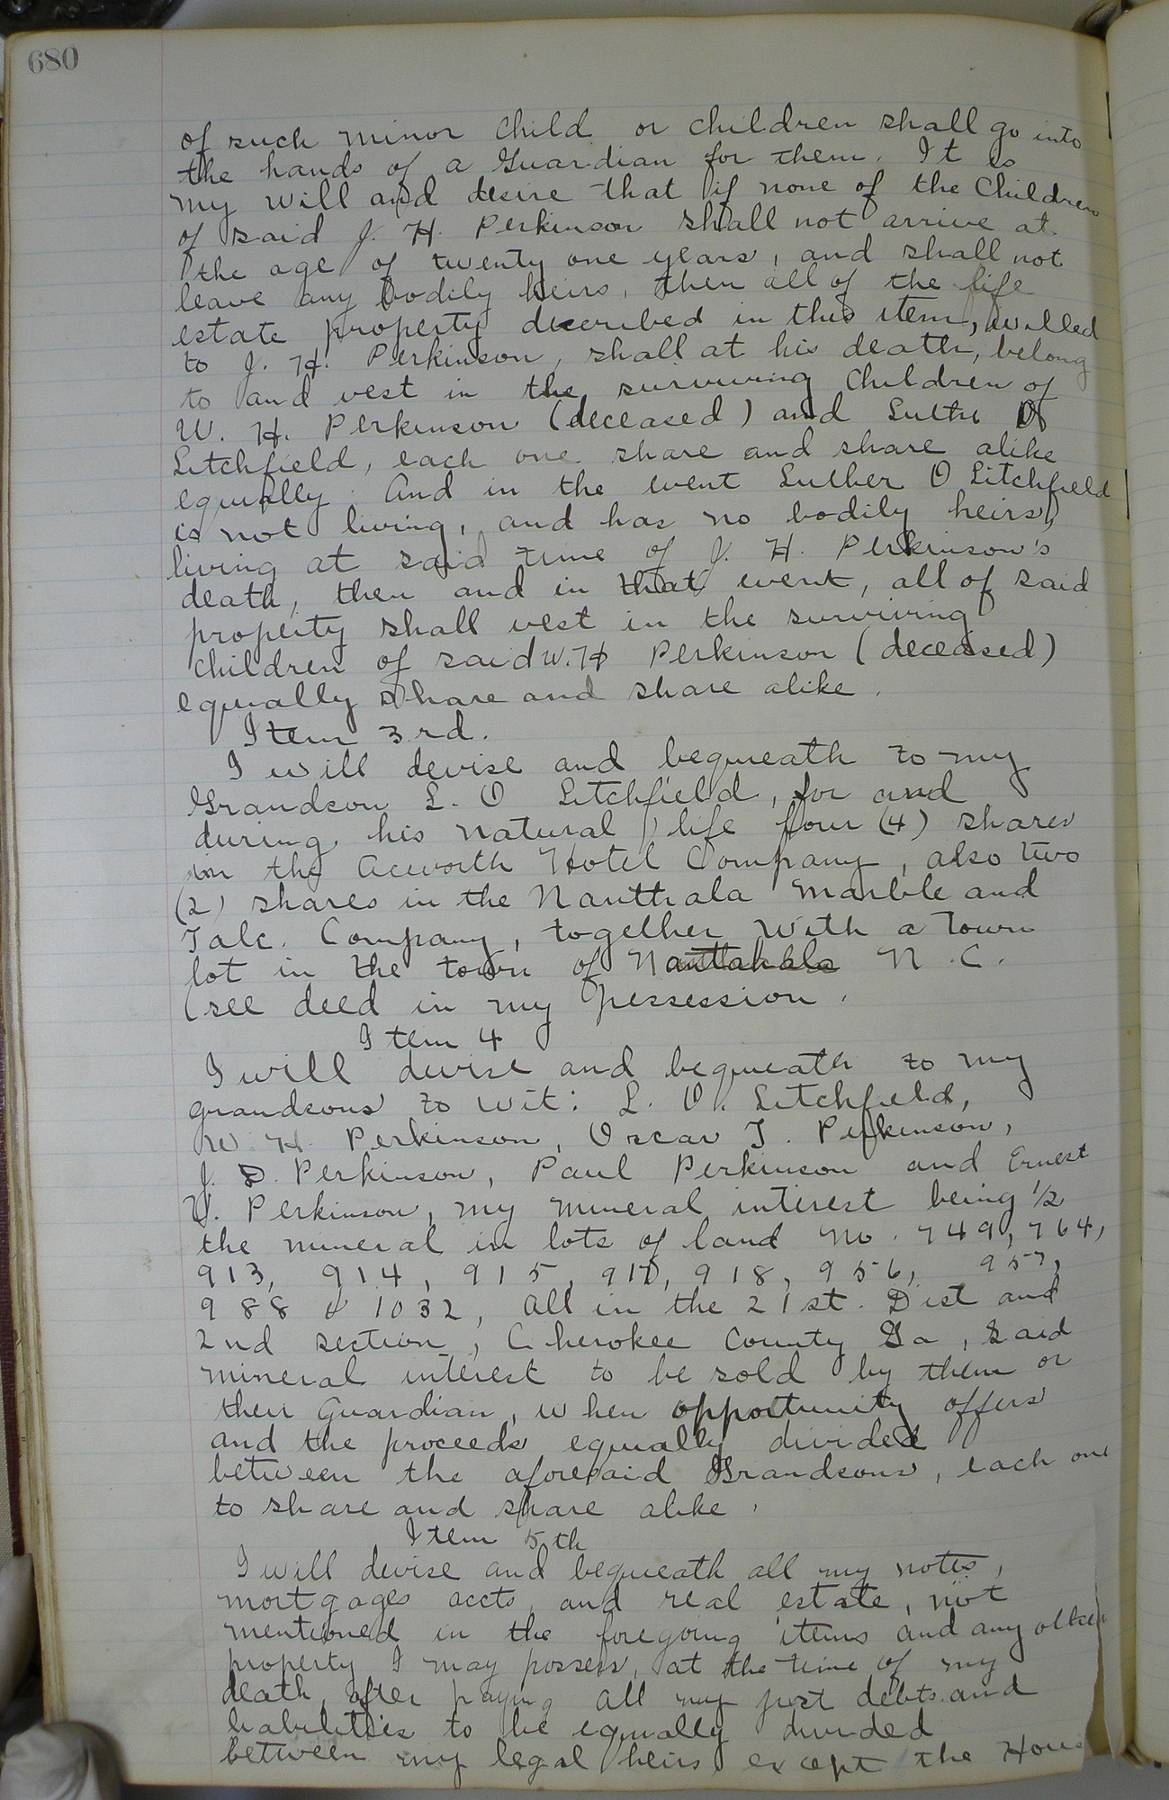 680
of such minor child or children shall go into
the hands of a Guardian for them. It is
my will and desire that if none of the Children
of said J. H. Perkinson shall not arrive at
the age of twenty one years, and shall not
leave any bodily heirs, then all of the life
estate property described in this item, willed
to J. H. Perkinson, shall at his death, belong
to and vest in the surviving Children of
W. H. Perkinson (deceased) and Luthe O
Litchfield, each one share and share alike
equally. And in the event Luther O Litchfield
is not living, and has no bodily heirs,
living at said time of J. H. Perkinson's
death, then and in that event, all of said
property shall vest in the surviving
children of said W. H Perkinson (deceased)
equally share and share alike.
Item 3rd.
I will devise and bequeath to my
Grandson L. O Litchfield, for and
during his natural life four (4) shares
in the Acworth Hotel Company, also two
(2) shares in the Nanthala Marble and
Talc. Company, together with a town
lot in the town of Nantahala N. C.
(see deed in my possession.
Item 4
I will devise and bequeath to my
grandsons to wit: L. O. Litchfield,
W. H. Perkinson, Oscar T. Perkinson,
J. D. Perkinson, Paul Perkinson and Ernest
V. Perkinson, my mineral interest being 1/2
the mineral in lots of land No. 749, 764,
913, 914, 915, 917, 918, 956, 957,
988 & 1032, all in the 21st. Dist and
2nd section, Cherokee County Ga, said
mineral interest to be sold by them or
their Guardian, when opportunity offers
and the proceeds equally divided
between the aforesaid Grandsons, each one
to share and share alike.
Item 5th
I will devise and bequeath all my notes,
mortgages accts, and real estate, not
mentioned in the foregoing items and any other
property I may possess, at the time of my
death, after paying all my just debts and
liabilities to be equally divided
between my legal heirs except the